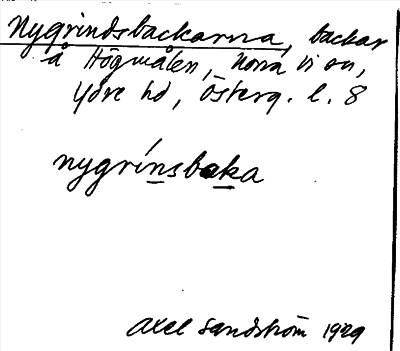 Nygrindsbackarna, backar
å Högmålen, Norra Vi sn,
Ydre hd, Österg. l. 8
nygrínsbaka
Axel Sandström 1929